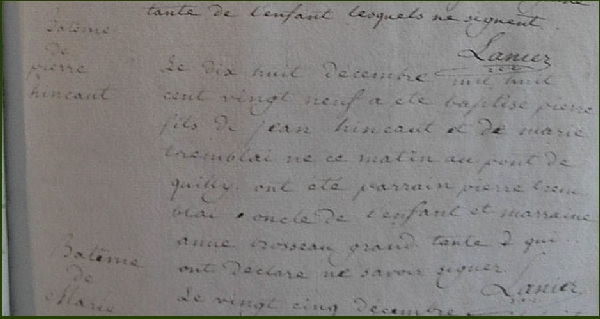 tante de l'enfant lesquels ne signent.
Lanier
Bateme
de
pierre
hincaut
Le dix huit decembre mil huit
cent vingt neuf a ete baptise pierre
fils de jean hincaut et de marie
tremblai ne ce matin au pont de
quilly. ont ete parrain pierre trem
blai oncle de l'enfant et marraine
anne brosseau grand tante qui
ont declare ne savoir signer
Lanier
Bateme
de
Marie
Le vingt cinq decembre